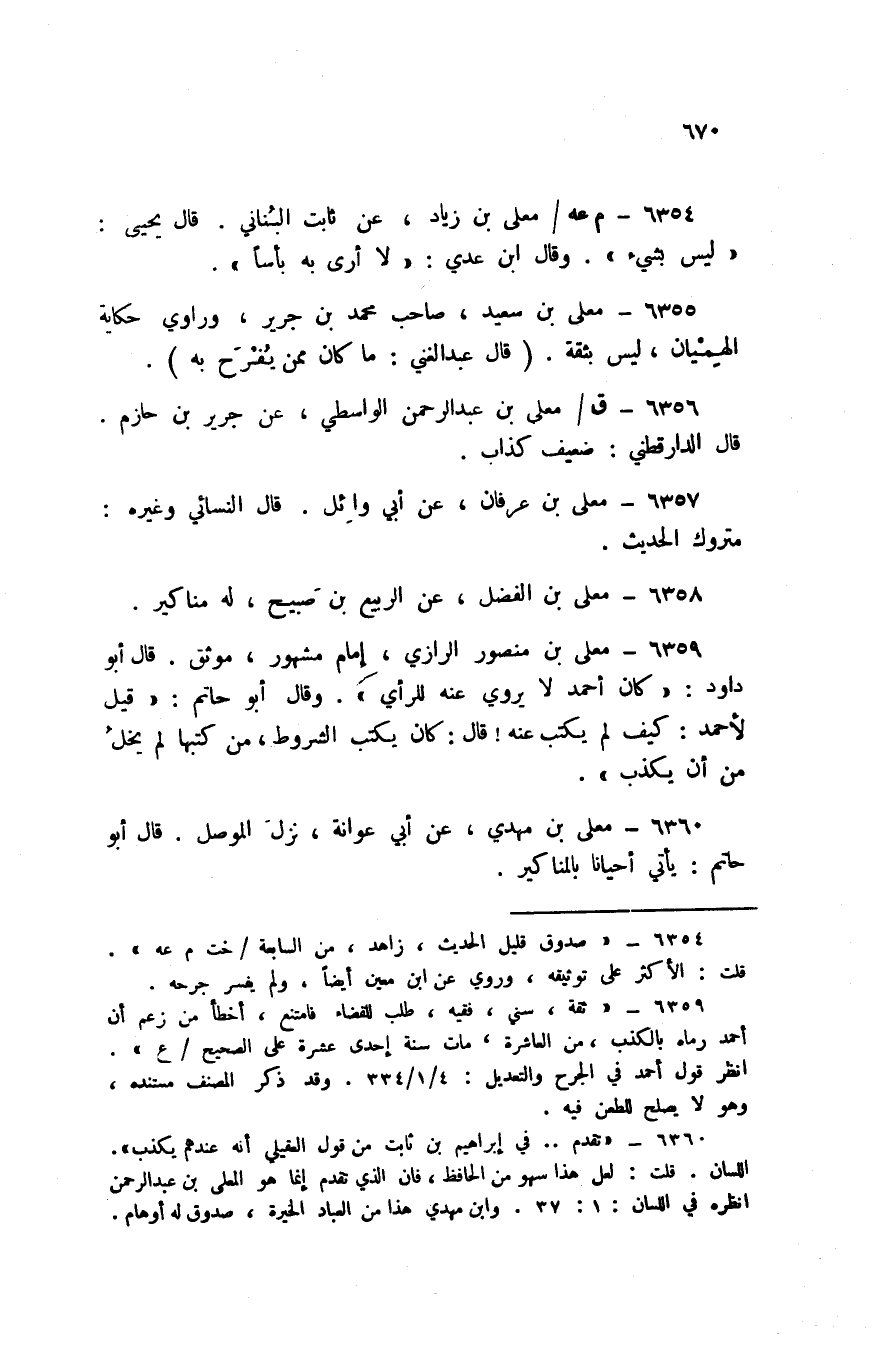 ٦٧٠
٦٣٥٤ – م عه / معلى بن زياد ، عن ثابت البُناني . قال يحيى :
« ليس بشيء » . وقال ابن عدي : « لا أرى به بأساً » .
٦٣٥٥ – معلى بن سعيد ، صاحب محمد بن جرير ، وراوي حكاية
الهِمْيان ، ليس بثقة . ( قال عبدالغني : ما كان ممن يُفْرَح به ) .
٦٣٥٦ – ق / معلى بن عبدالرحمن الواسطي ، عن جرير بن حازم .
قال الدارقطني : ضعيف كذاب .
٦٣٥٧ – معلى بن عرفان ، عن أبي وائل . قال النسائي وغيره :
متروك الحديث .
٦٣٥٨ – معلى بن الفضل ، عن الربيع بن صَبيح ، له مناكير .
٦٣٥٩ – معلى بن منصور الرازي ، إمام مشهور ، موثق . قال أبو
داود : « كان أحمد لا يروي عنه للرأي » . وقال أبو حاتم : « قيل
لأحمد : كيف لم يكتب عنه ! قال : كان يكتب الشروط ، من كتبها لم يخلُ
من أن يكذب » .
٦٣٦٠ – معلى بن مهدي ، عن أبي عوانة ، نزلَ الموصل . قال أبو
حاتم : يأتي أحيانا بالمناكير .
٦٣٥٤ – « صدوق قليل الحديث ، زاهد ، من السابعة / خت م عه » .
قلت : الأكثر على توثيقه ، وروي عن ابن معين أيضاً ، ولم يفسر جرحه .
٦٣٥٩ – « ثقة ، سني ، فقيه ، طلب للقضاء فامتنع ، أخطأ من زعم أن
أحمد رماه بالكذب ، من العاشرة ، مات سنة إحدى عشرة على الصحيح / ع » .
انظر قول أحمد في الجرح والتعديل : ٣٣٤/١/٤ . وقد ذكر المصنف مستنده ،
وهو لا يصلح للطعن فيه .
٦٣٦٠ – «تقدم .. في إبراهيم بن ثابت من قول العقيلي أنه عندهم يكذب».
اللسان . قلت : لعل هذا سهو من الحافظ ، فان الذي تقدم إنما هو المعلى بن عبدالرحمن
انظره في اللسان : ١ : ٣٧ . وابن مهدي هذا من العباد الخيرة ، صدوق له أوهام .